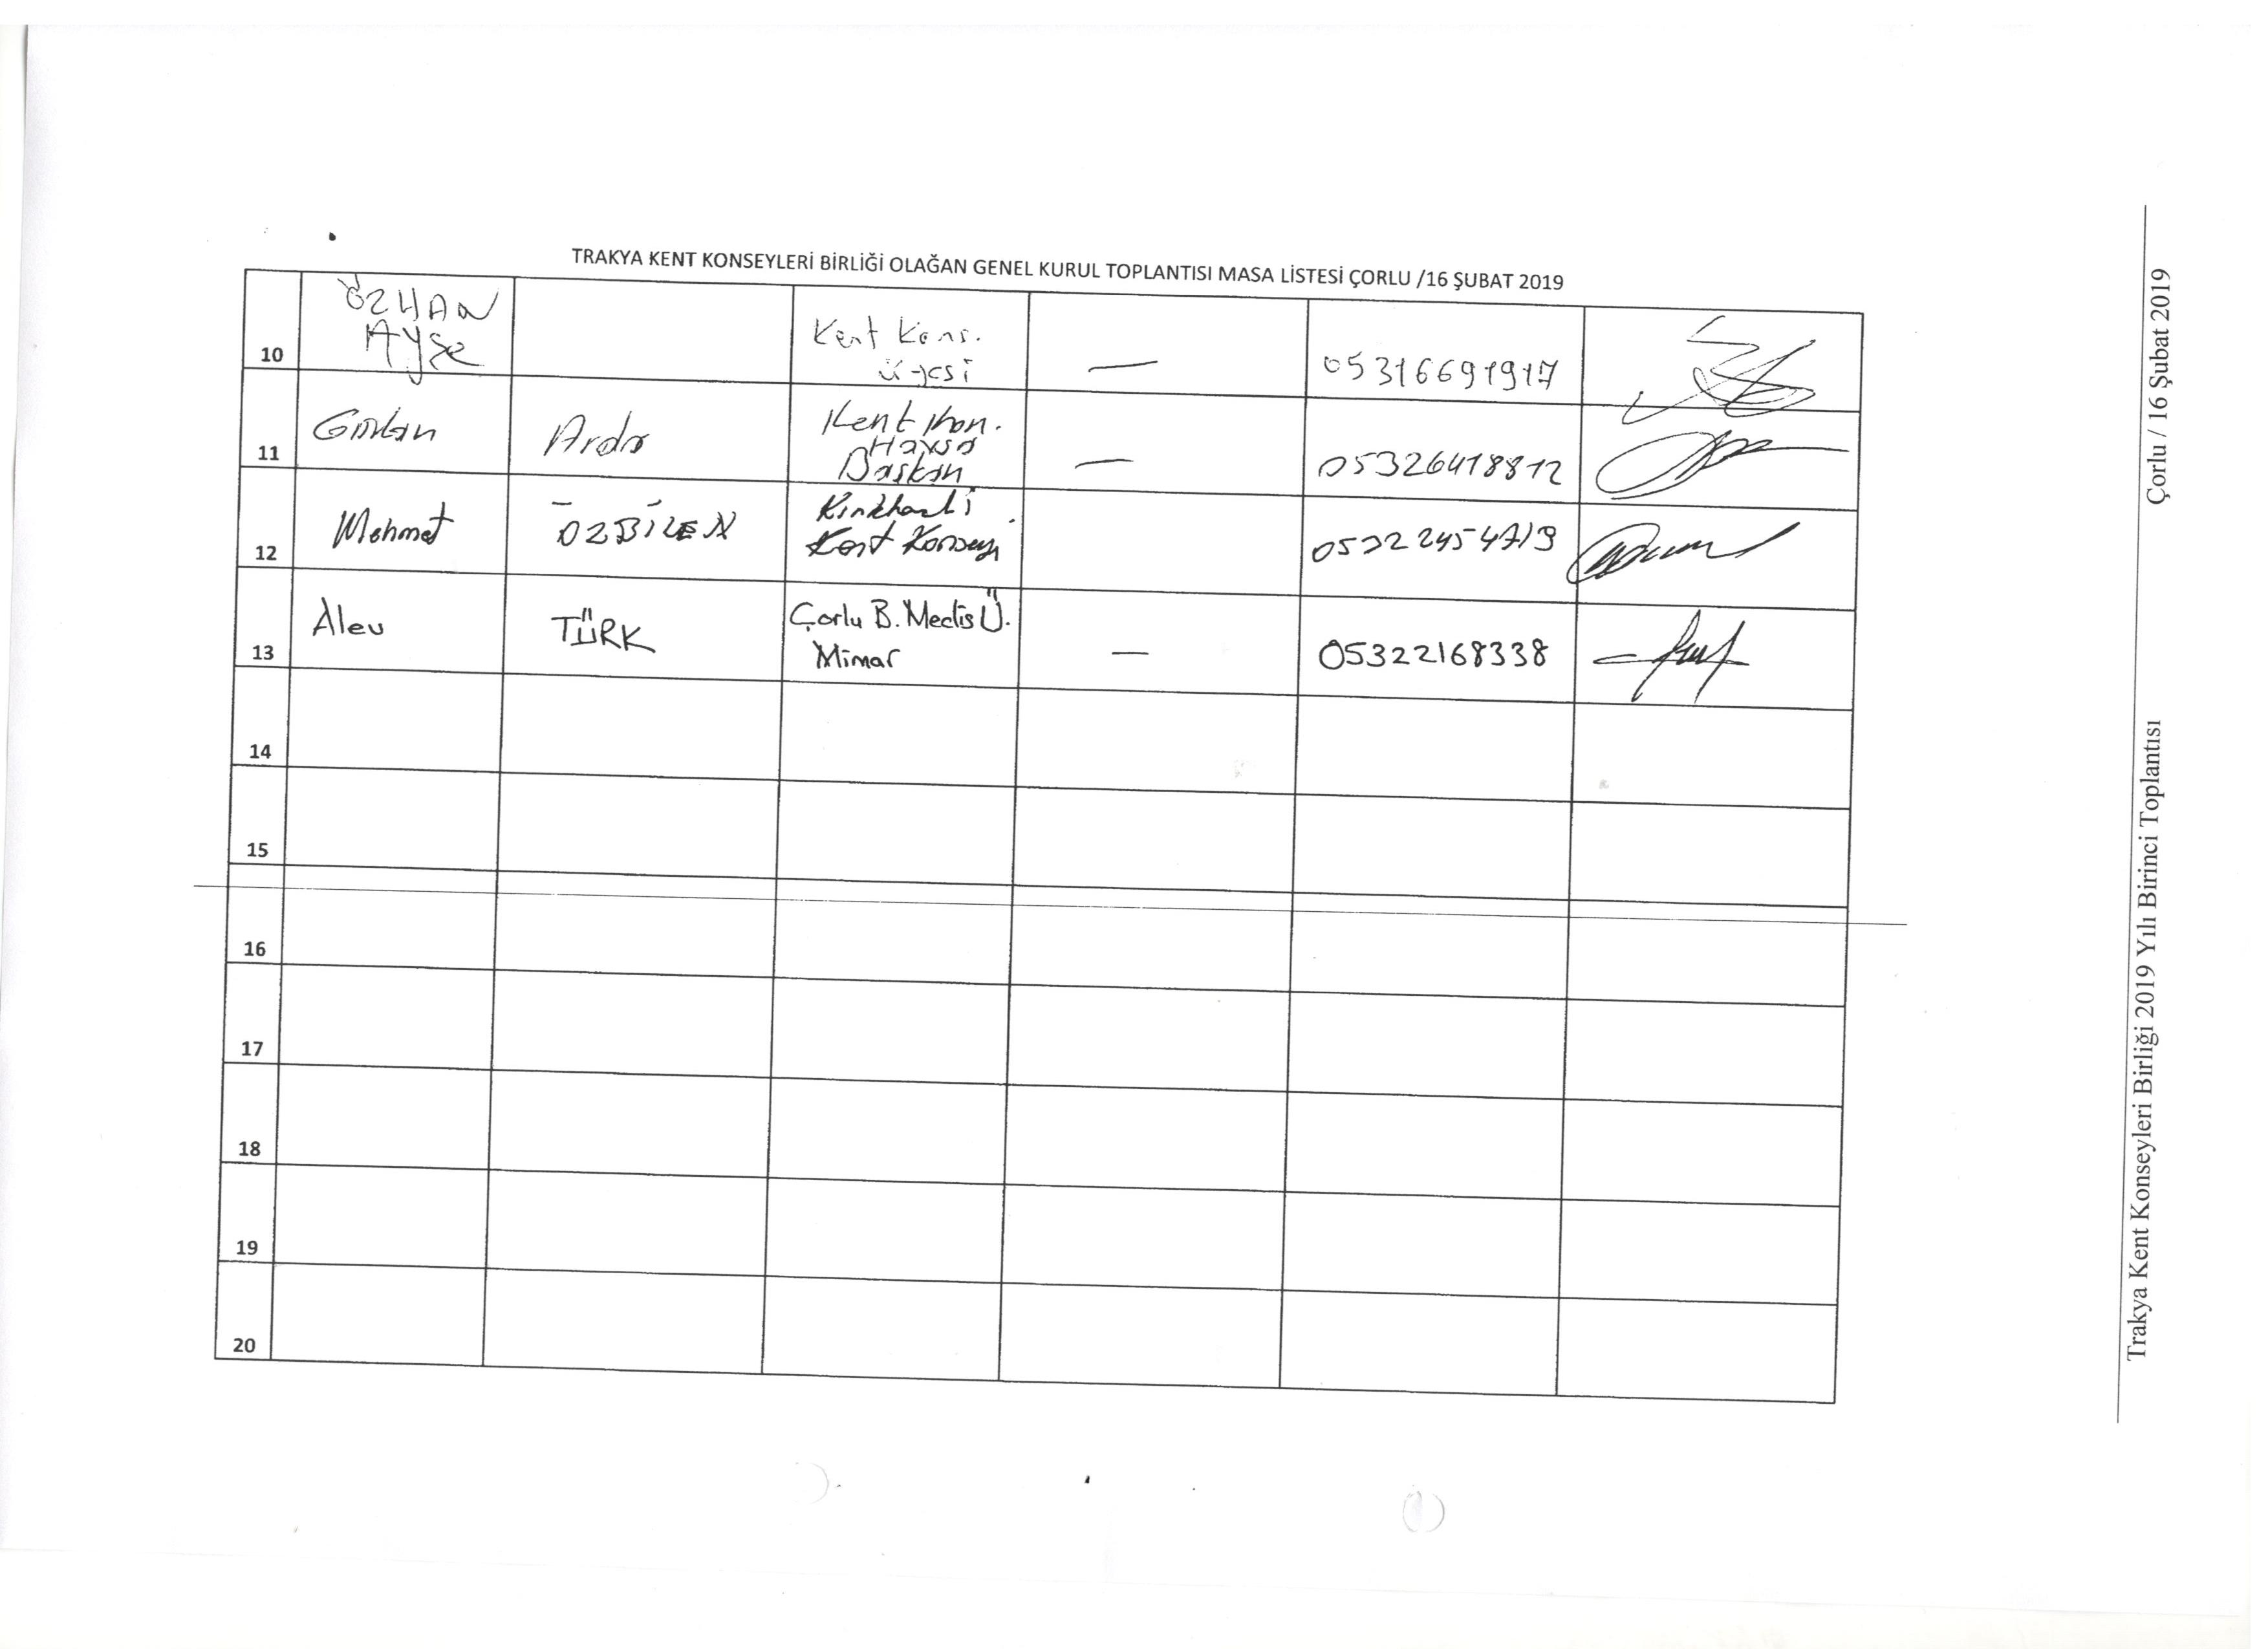 TRAKYA KENT KONSEYLERİ BİRLİĞİ OLAĞAN GENEL KURUL TOPLANTISI MASA LİSTESİ ÇORLU /16 ŞUBAT 2019
10 ÖZHAN AYŞE Kent Kons. üyesi — 05316691917
11 Gürkan Arda Kent Kon. Havsa Başkan — 05326418812
12 Mehmet ÖZBİLEN Kırklareli Kent Konseyi 05322454719
13 Alev TÜRK Çorlu B. Meclis Ü. Mimar — 05322168338
14
15
16
17
18
19
20
Trakya Kent Konseyleri Birliği 2019 Yılı Birinci Toplantısı Çorlu / 16 Şubat 2019